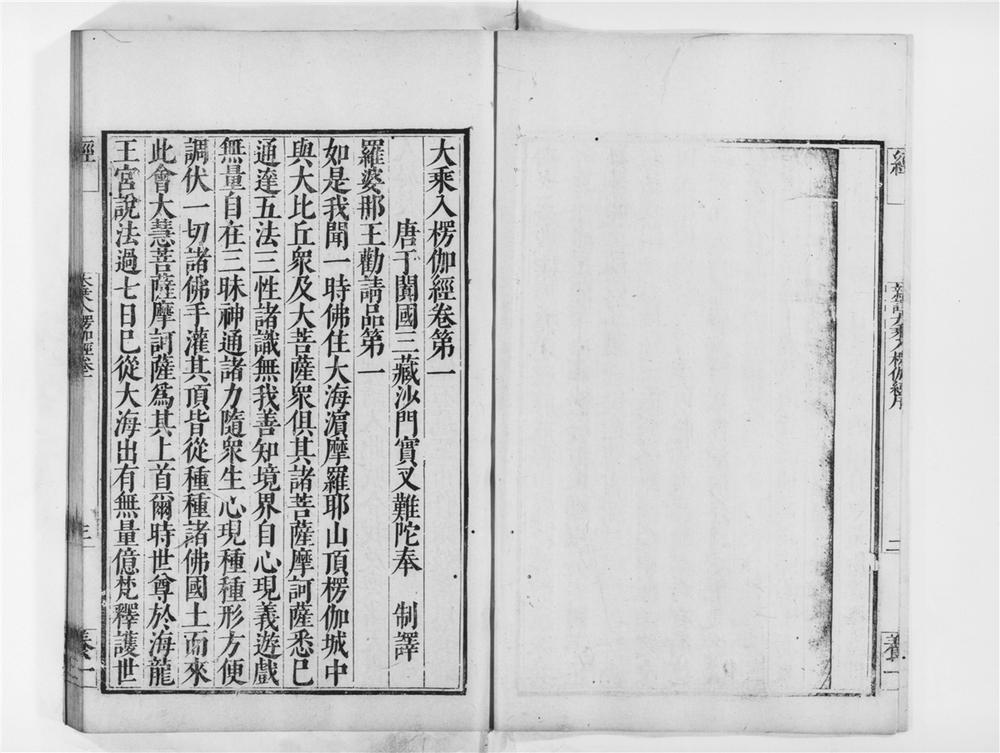 經
大乘入楞伽經序
二
養一
大乘入楞伽經卷第一
唐于闐國三藏沙門實叉難陀奉 制譯
羅婆那王勸請品第一
如是我聞一時佛住大海濵摩羅耶山頂楞伽城中
與大比丘衆及大菩薩衆俱其諸菩薩摩訶薩悉已
通達五法三性諸識無我善知境界自心現義遊戲
無量自在三昧神通諸力隨衆生心現種種形方便
調伏一切諸佛手灌其頂皆從種種諸佛國土而來
此會大慧菩薩摩訶薩爲其上首爾時世尊於海龍
王宮說法過七日已從大海出有無量億梵釋護世
經
大乘入楞伽經卷一
三
養一